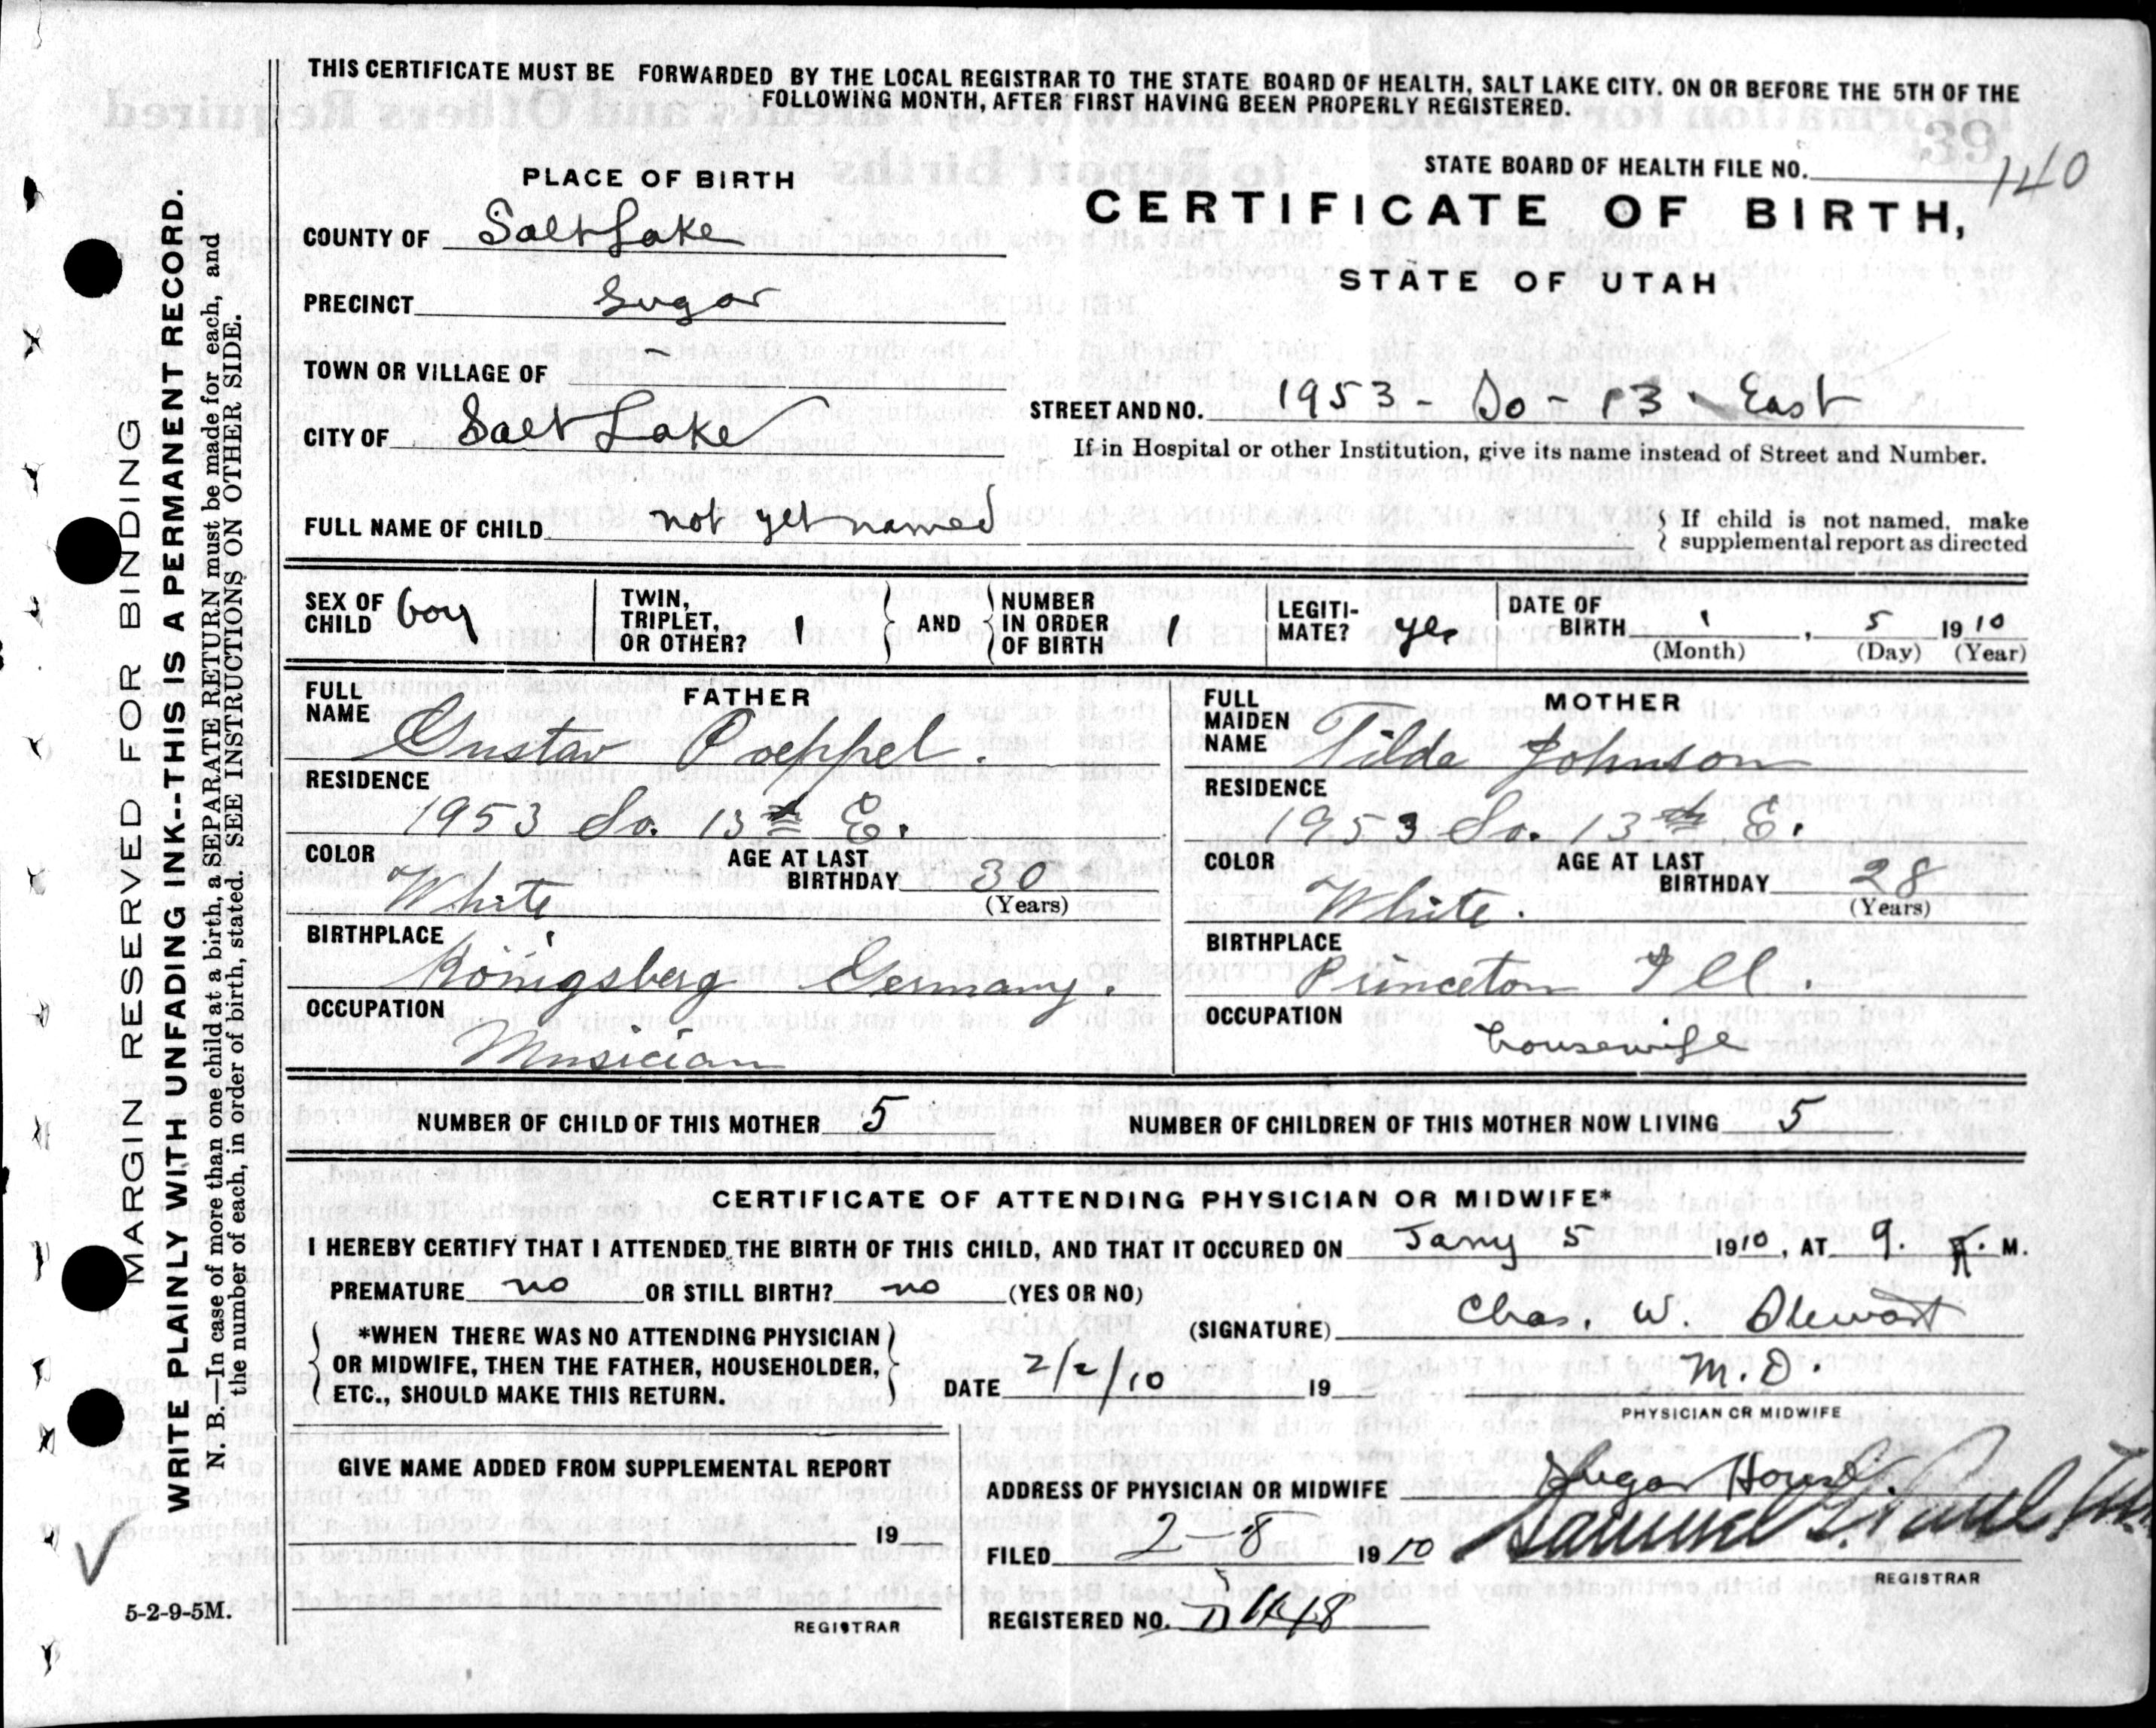 THIS CERTIFICATE MUST BE FORWARDED BY THE LOCAL REGISTRAR TO THE STATE BOARD OF HEALTH, SALT LAKE CITY. ON OR BEFORE THE 5TH OF THE
FOLLOWING MONTH, AFTER FIRST HAVING BEEN PROPERLY REGISTERED.
39
STATE BOARD OF HEALTH FILE NO. 140
PLACE OF BIRTH
CERTIFICATE OF BIRTH,
STATE OF UTAH
COUNTY OF Salt Lake
PRECINCT Sugar
TOWN OR VILLAGE OF –
CITY OF Salt Lake
STREET AND NO. 1953 - So - 13. East
If in Hospital or other Institution, give its name instead of Street and Number.
FULL NAME OF CHILD not yet named
If child is not named, make
supplemental report as directed
SEX OF CHILD boy
TWIN, TRIPLET, OR OTHER? 1
AND
NUMBER IN ORDER OF BIRTH 1
LEGITI-MATE? yes
DATE OF BIRTH 1, 5 1910
(Month) (Day) (Year)
FATHER
FULL NAME Gustav Poeppel.
RESIDENCE
1953 So. 13th E.
COLOR White
AGE AT LAST BIRTHDAY 30
(Years)
BIRTHPLACE
Königsberg Germany.
OCCUPATION
Musician
MOTHER
FULL MAIDEN NAME Tilda Johnson
RESIDENCE
1953 So. 13th E.
COLOR White.
AGE AT LAST BIRTHDAY 28
(Years)
BIRTHPLACE
Princeton Ill.
OCCUPATION
housewife
NUMBER OF CHILD OF THIS MOTHER 5
NUMBER OF CHILDREN OF THIS MOTHER NOW LIVING 5
CERTIFICATE OF ATTENDING PHYSICIAN OR MIDWIFE*
I HEREBY CERTIFY THAT I ATTENDED THE BIRTH OF THIS CHILD, AND THAT IT OCCURED ON Jany 5 1910, AT 9. M.
PREMATURE no OR STILL BIRTH? no (YES OR NO)
*WHEN THERE WAS NO ATTENDING PHYSICIAN
OR MIDWIFE, THEN THE FATHER, HOUSEHOLDER,
ETC., SHOULD MAKE THIS RETURN.
(SIGNATURE) Chas. W. Stewart
DATE 2/2/10 19
M.D.
PHYSICIAN OR MIDWIFE
GIVE NAME ADDED FROM SUPPLEMENTAL REPORT
19
REGISTRAR
ADDRESS OF PHYSICIAN OR MIDWIFE Sugar House
FILED 2-8 1910 Samuel G. Paul
REGISTRAR
REGISTERED NO.
MARGIN RESERVED FOR BINDING
WRITE PLAINLY WITH UNFADING INK--THIS IS A PERMANENT RECORD.
N. B.—In case of more than one child at a birth, a SEPARATE RETURN must be made for each, and
the number of each, in order of birth, stated. SEE INSTRUCTIONS ON OTHER SIDE.
5-2-9-5M.